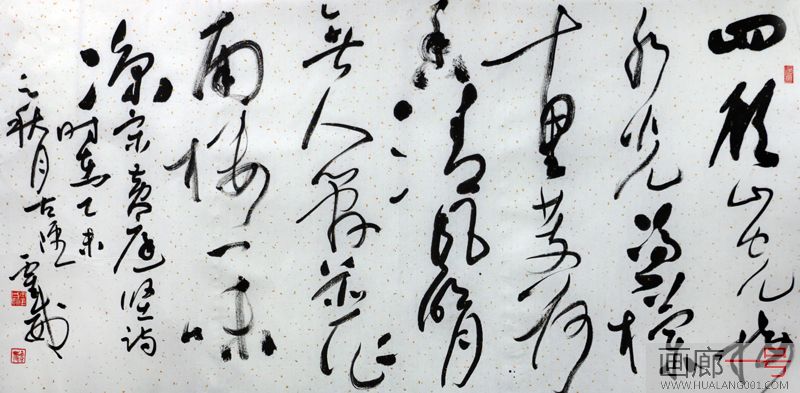 四顾山光接
水光凭栏
十里芰荷
香清风明月
无人管并作
南楼一味
凉宋黄庭坚诗
时在乙未
之秋月古
画廊一号
WWW.HUALANG001.COM